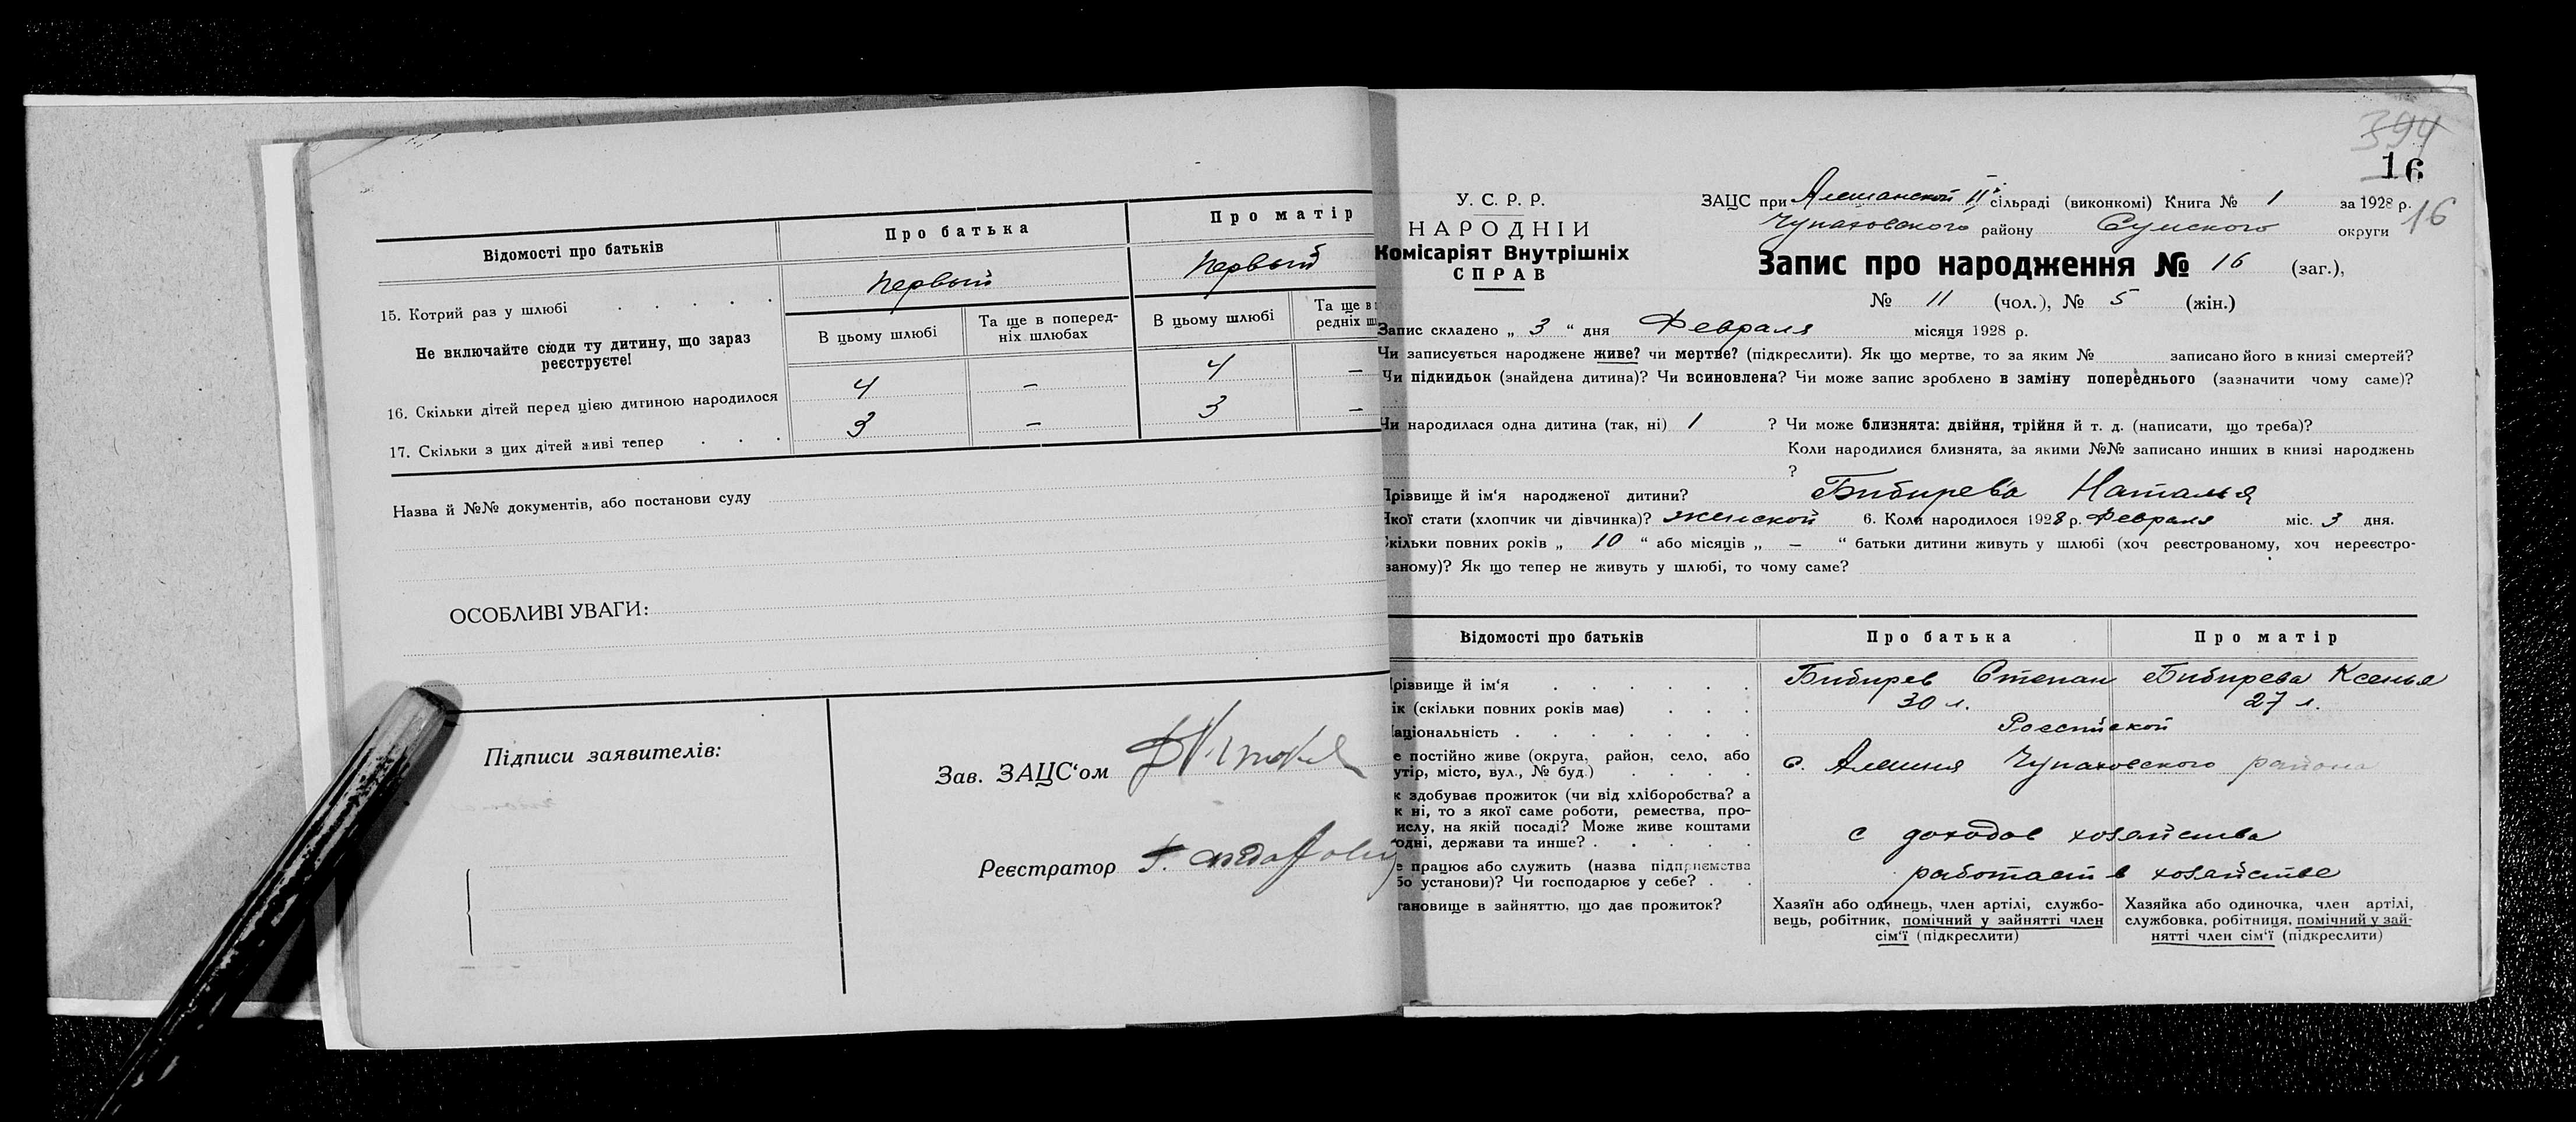 Відомості про батьків
Про батька
Про матір
15. Котрий раз у шлюбі
первый
первый
Не включайте сюди ту дитину, що зараз реєструєте!
В цьому шлюбі
Та ще в поперед-
ніх шлюбах
В цьому шлюбі
Та ще в
редніх
16. Скільки дітей перед цією дитиною народилося
4
–
4
–
17. Скільки з цих дітей живі тепер
3
–
3
–
Назва й №№ документів, або постанови суду
ОСОБЛИВІ УВАГИ:
Підписи заявителів:
Зав. ЗАЦС'ом
Реєстратор
394
16
16
У. С. Р. Р.
НАРОДНІЙ
Комісаріят Внутрішніх
СПРАВ
ЗАЦС при Алешанской II сільраді (виконкомі) Книга № 1 за 1928 р.
Чупаховского району Сумского округи
Запис про народження № 16 (заг.),
№ 11 (чол.), № 5 (жін.)
Запис складено „ 3 “ дня Февраля місяця 1928 р.
Чи записується народжене живе? чи мертве? (підкреслити). Як що мертве, то за яким № записано його в книзі смертей?
Чи підкидьок (знайдена дитина)? Чи всиновлена? Чи може запис зроблено в заміну попереднього (зазначити чому саме)?
Чи народилася одна дитина (так, ні) 1 ? Чи може близнята: двійня, трійня й т. д. (написати, що треба)?
Коли народилися близнята, за якими №№ записано инших в книзі народжень
?
Прізвище й ім'я народженої дитини? Бибирева Наталья
Якої стати (хлопчик чи дівчинка)? женской 6. Коли народилося 1928 р. Февраля міс. 3 дня.
Скільки повних років „ 10 “ або місяців „ – “ батьки дитини живуть у шлюбі (хоч реєстрованому, хоч нереєстро-
ваному)? Як що тепер не живуть у шлюбі, то чому саме?
Відомості про батьків
Про батька
Про матір
Прізвище й ім'я
Бибирев Степан
Бибирева Ксенья
ік (скільки повних років має)
30 л.
27 л.
аціональність
Россійской
е постійно живе (округа, район, село, або
утір, місто, вул., № буд.)
с. Алешня Чупаховского района
к здобуває прожиток (чи від хліборобства? а
к ні, то з якої саме роботи, ремества, про-
ислу, на якій посаді? Може живе коштами
одні, держави та инше?
с доходов хозяйства
е працює або служить (назва підприємства
бо установи)? Чи господарює у себе?
работает в хозяйстве
тановище в зайняттю, що дає прожиток?
Хазяїн або одинець, член артілі, службо-
вець, робітник, помічний у зайнятті член
сім'ї (підкреслити)
Хазяйка або одиночка, член артілі,
службовка, робітниця, помічний у зай-
нятті член сім'ї (підкреслити)